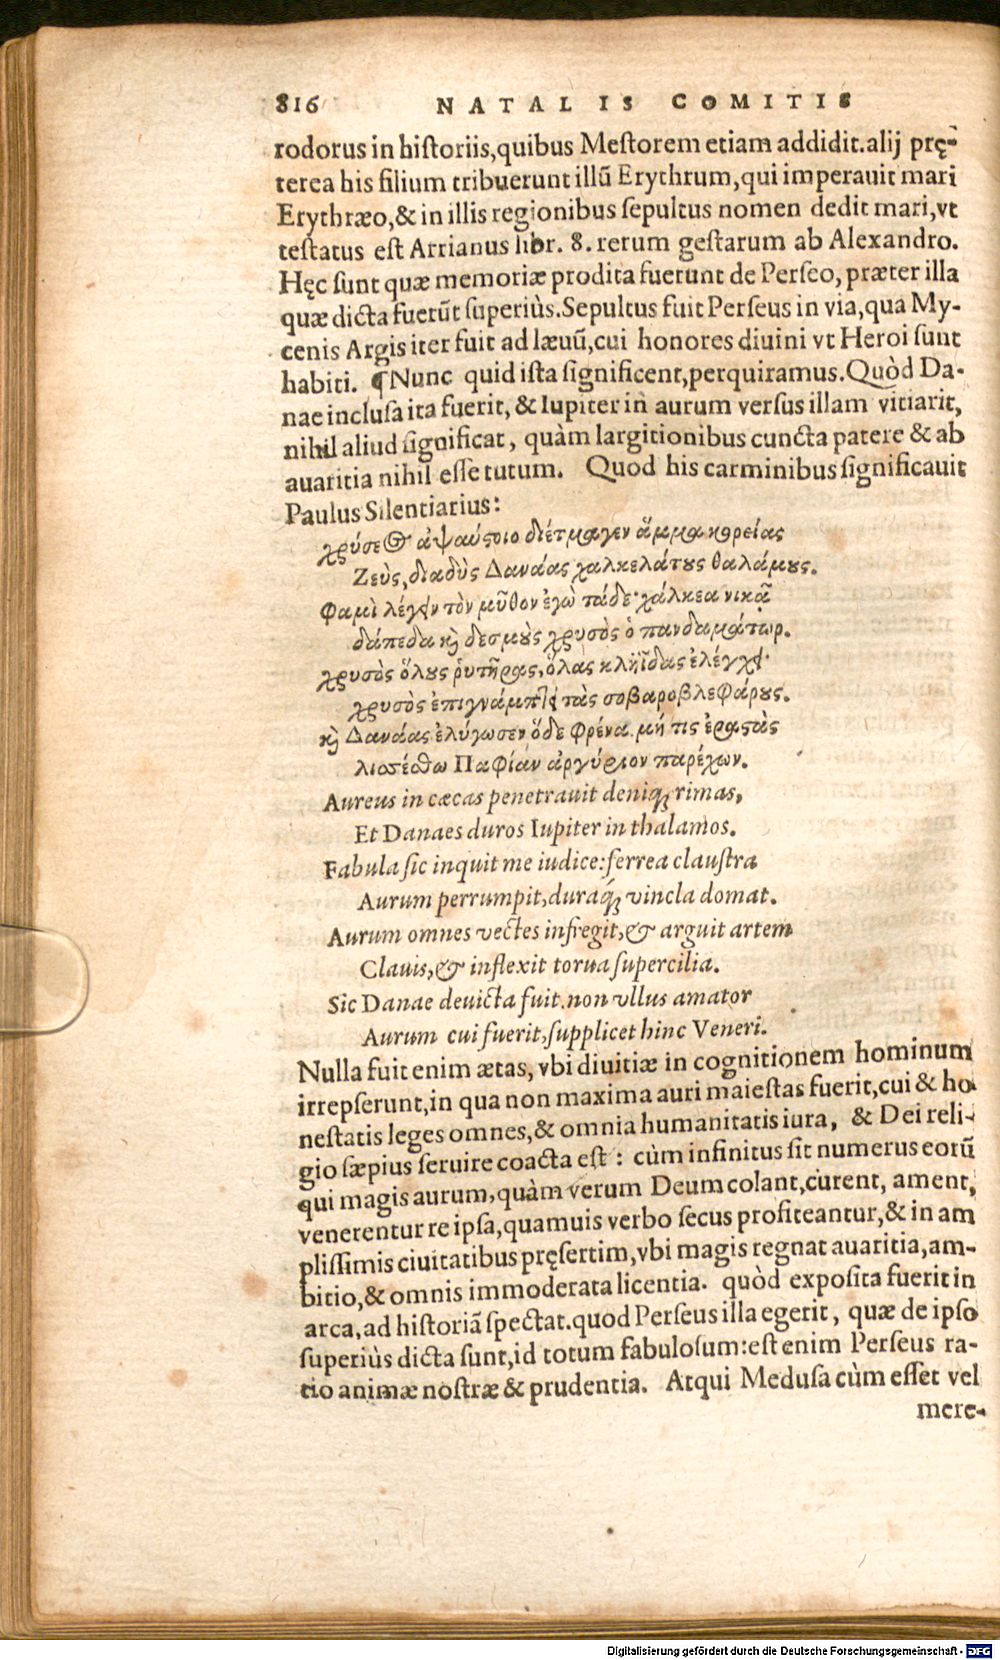 816 NATALIS COMITIS
rodorus in historiis,quibus Mestorem etiam addidit.alij prę-
terea his filium tribuerunt illũ Erythrum,qui imperauit mari
Erythræo,& in illis regionibus sepultus nomen dedit mari,vt
testatus est Arrianus libr. 8. rerum gestarum ab Alexandro.
Hęc sunt quæ memoriæ prodita fuerunt de Perseo, præter illa
quæ dicta fuerũt superiùs.Sepultus fuit Perseus in via,qua My-
cenis Argis iter fuit ad læuũ,cui honores diuini vt Heroi sunt
habiti. ¶Nunc quid ista significent,perquiramus.Quòd Da-
nae inclusa ita fuerit, & Iupiter in aurum versus illam vitiarit,
nihil aliud significat, quàm largitionibus cuncta patere & ab
auaritia nihil esse tutum. Quod his carminibus significauit
Paulus Silentiarius:
χρύσεος ἀψαύςοιο διέτμαγεν ἅμμα κορείας
Ζεὺς, διαδὺς Δανάας χαλκελάτους θαλάμους.
Φαμὶ λέγειν τὸν μῦθον ἐγὼ τάδε· χάλκεα νικᾷ
δάπεδα καὶ δεσμοὺς χρυσὸς ὁ πανδαμάτωρ.
χρυσὸς ὅλους ῥυτῆρας, ὅλας κληῗδας ἐλέγχει·
χρυσὸς ἐπιγνάμπτει τὰς σοβαροβλεφάρους.
καὶ Δανάας ἐλύγωσεν ὅδε φρένα. μή τις ἐραστὰς
λισσέσθω Παφίαν ἀργύριον παρέχων.
Aureus in cæcas penetrauit deniq; rimas,
Et Danaes duros Iupiter in thalamos.
Fabula sic inquit me iudice: ferrea claustra
Aurum perrumpit,duraq́; vincla domat.
Aurum omnes vectes infregit,& arguit artem
Clauis,& inflexit torua supercilia.
Sic Danae deuicta fuit. non vllus amator
Aurum cui fuerit,supplicet hinc Veneri.
Nulla fuit enim ætas, vbi diuitiæ in cognitionem hominum
irrepserunt,in qua non maxima auri maiestas fuerit,cui & ho-
nestatis leges omnes,& omnia humanitatis iura, & Dei reli-
gio sæpius seruire coacta est: cùm infinitus sit numerus eorũ
qui magis aurum,quàm verum Deum colant,curent, ament,
venerentur re ipsa,quamuis verbo secus profiteantur,& in am
plissimis ciuitatibus pręsertim,vbi magis regnat auaritia,am-
bitio,& omnis immoderata licentia. quòd exposita fuerit in
arca,ad historiã spectat.quod Perseus illa egerit, quæ de ipso
superiùs dicta sunt,id totum fabulosum:est enim Perseus ra-
tio animæ nostræ & prudentia. Atqui Medusa cùm esset vel
mere-
Digitalisierung gefördert durch die Deutsche Forschungsgemeinschaft - DFG